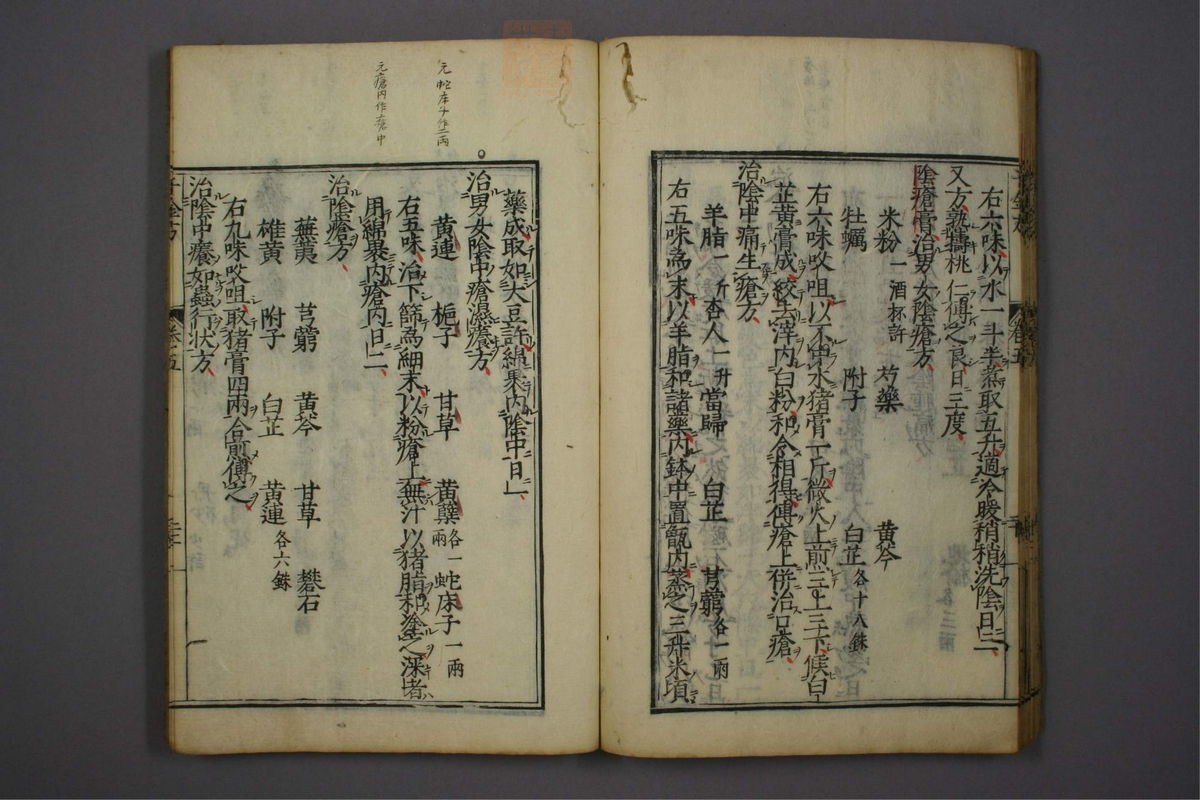 右六味以水一斗半煮取五升適冷暖稍稍洗陰日二
又方熟擣桃仁傅之良日三度
陰瘡膏治男女陰瘡方
米粉一酒杯許 芍藥 黄芩
牡蠣 附子 白芷各十八銖
右六味㕮咀以不中水猪膏一斤微火上煎三上三下候白
芷黄膏成絞去滓内白粉和令相得傅瘡上併治口瘡
治陰中痛生瘡方
羊脂一斤 杏人一升 當歸 白芷 芎藭各一兩
右五味為末以羊脂和諸藥内鉢中置甑内蒸之三升米頃
藥成取如大豆許綿裹内陰中日一
治男女陰中瘡濕癢方
黄連 梔子 甘草 黄蘗各一兩 蛇床子一兩
右五味治下篩為細末以粉瘡上無汁以猪脂和塗之深者
用綿裹内瘡内日二
治陰瘡方
蕪荑 芎藭 黄芩 甘草 礬石
雄黄 附子 白芷 黄連各六銖
右九味㕮咀取猪膏四兩合煎傅之
治陰中癢如蟲行狀方
千金方 卷五
元 蛇床子作二兩
元瘡内作瘡中